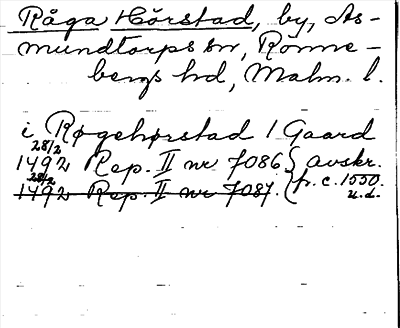 Råga Hörstad, by, As-
mundtorps sn, Rönne-
bergs hd, Malm. l.
i Røgehørstad 1 Gaard
28/2
1492 Rep. II nr 7086 } avskr.
28/2
1492 Rep. II nr 7087. { fr. c. 1550.
u.d.